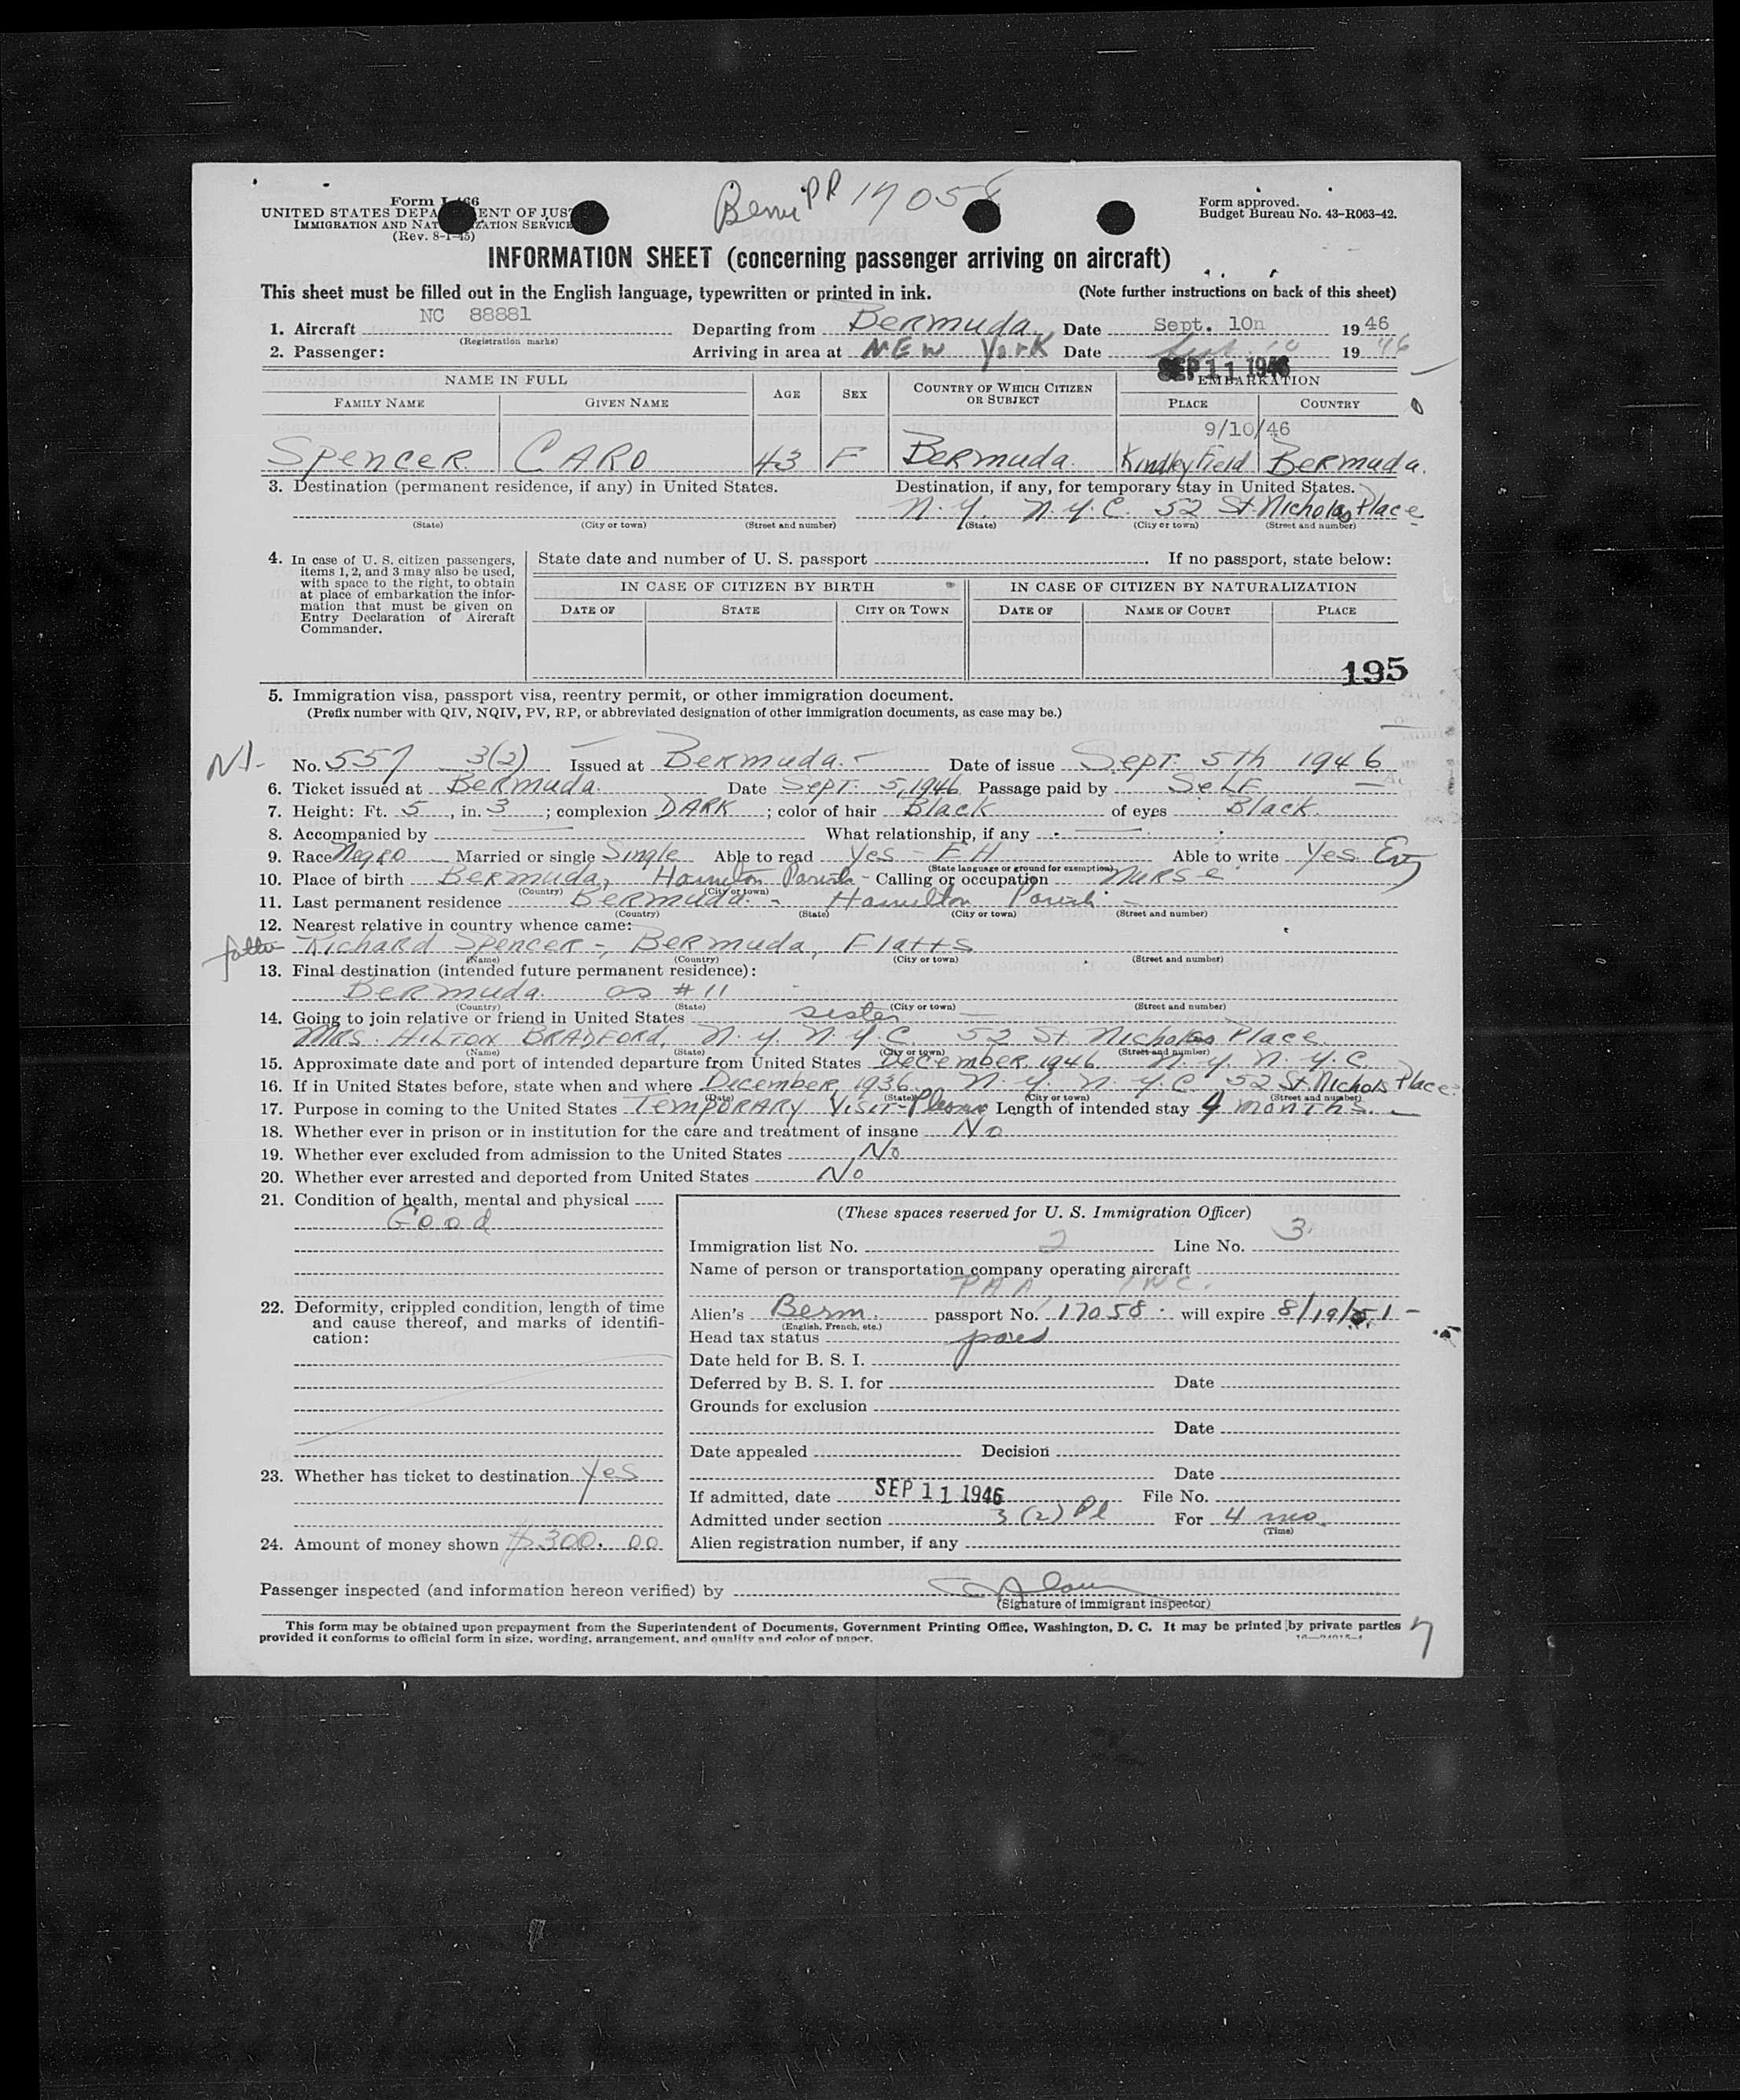 Form I-466
UNITED STATES DEPARTMENT OF JUSTICE
IMMIGRATION AND NATURALIZATION SERVICE
(Rev. 8-1-45)
17058
Form approved.
Budget Bureau No. 43-R063-42.
INFORMATION SHEET (concerning passenger arriving on aircraft)
This sheet must be filled out in the English language, typewritten or printed in ink. (Note further instructions on back of this sheet)
1. Aircraft NC 88881 Departing from Bermuda Date Sept. 10n 1946
(Registration marks)
2. Passenger: Arriving in area at NEW York Date Sept. 10 1946
SEP 11 1946
NAME IN FULL AGE SEX COUNTRY OF WHICH CITIZEN OR SUBJECT EMBARKATION
FAMILY NAME GIVEN NAME PLACE COUNTRY
9/10/46
Spencer CARO 43 F Bermuda. Kindley Field Bermuda.
3. Destination (permanent residence, if any) in United States. Destination, if any, for temporary stay in United States.
N.Y. N.Y.C. 52 St. Nicholas Place
(State) (City or town) (Street and number) (State) (City or town) (Street and number)
4. In case of U. S. citizen passengers, items 1, 2, and 3 may also be used, with space to the right, to obtain at place of embarkation the information that must be given on Entry Declaration of Aircraft Commander.
State date and number of U. S. passport If no passport, state below:
IN CASE OF CITIZEN BY BIRTH IN CASE OF CITIZEN BY NATURALIZATION
DATE OF STATE CITY OR TOWN DATE OF NAME OF COURT PLACE
195
5. Immigration visa, passport visa, reentry permit, or other immigration document.
(Prefix number with QIV, NQIV, PV, RP, or abbreviated designation of other immigration documents, as case may be.)
No. 557 3(2) Issued at Bermuda. Date of issue Sept 5th 1946
6. Ticket issued at Bermuda. Date Sept. 5, 1946 Passage paid by SeLF
7. Height: Ft. 5, in. 3; complexion DARK; color of hair Black of eyes Black.
8. Accompanied by What relationship, if any
9. Race Negro Married or single Single Able to read Yes - Able to write Yes
(State language or ground for exemption)
10. Place of birth Bermuda, Hamilton Parish - Calling or occupation Nurse
(Country) (City or town)
11. Last permanent residence Bermuda. - Hamilton Parish -
(Country) (State) (City or town) (Street and number)
12. Nearest relative in country whence came:
father Richard Spencer -, Bermuda, Flatts
(Name) (Country) (City or town) (Street and number)
13. Final destination (intended future permanent residence):
Bermuda. as # 11
(Country) (State) (City or town) (Street and number)
14. Going to join relative or friend in United States sister
Mrs. HILTON BRADFORD, N.Y. N.Y.C. 52 St Nicholas Place
(Name) (State) (City or town) (Street and number)
15. Approximate date and port of intended departure from United States December 1946 N.Y. N.Y.C.
16. If in United States before, state when and where December, 1936. N.Y. N.Y.C. 52 St. Nichols Place.
(Date) (State) (City or town) (Street and number)
17. Purpose in coming to the United States TEMPORARY Visit-Pleasure Length of intended stay 4 months.
18. Whether ever in prison or in institution for the care and treatment of insane No
19. Whether ever excluded from admission to the United States No
20. Whether ever arrested and deported from United States No
21. Condition of health, mental and physical
Good
22. Deformity, crippled condition, length of time and cause thereof, and marks of identification:
23. Whether has ticket to destination Yes
24. Amount of money shown $300.00
(These spaces reserved for U. S. Immigration Officer)
Immigration list No. 2 Line No. 3
Name of person or transportation company operating aircraft
PAA, INC.
Alien's Berm. passport No. 17058 will expire 8/19/51
(English, French, etc.)
Head tax status paid
Date held for B. S. I.
Deferred by B. S. I. for Date
Grounds for exclusion
Date
Date appealed Decision
Date
If admitted, date SEP 11 1946 File No.
Admitted under section 3 (2) Pl For 4 mo.
(Time)
Alien registration number, if any
Passenger inspected (and information hereon verified) by
(Signature of immigrant inspector)
This form may be obtained upon prepayment from the Superintendent of Documents, Government Printing Office, Washington, D. C. It may be printed by private parties
provided it conforms to official form in size, wording, arrangement, and quality and color of paper.